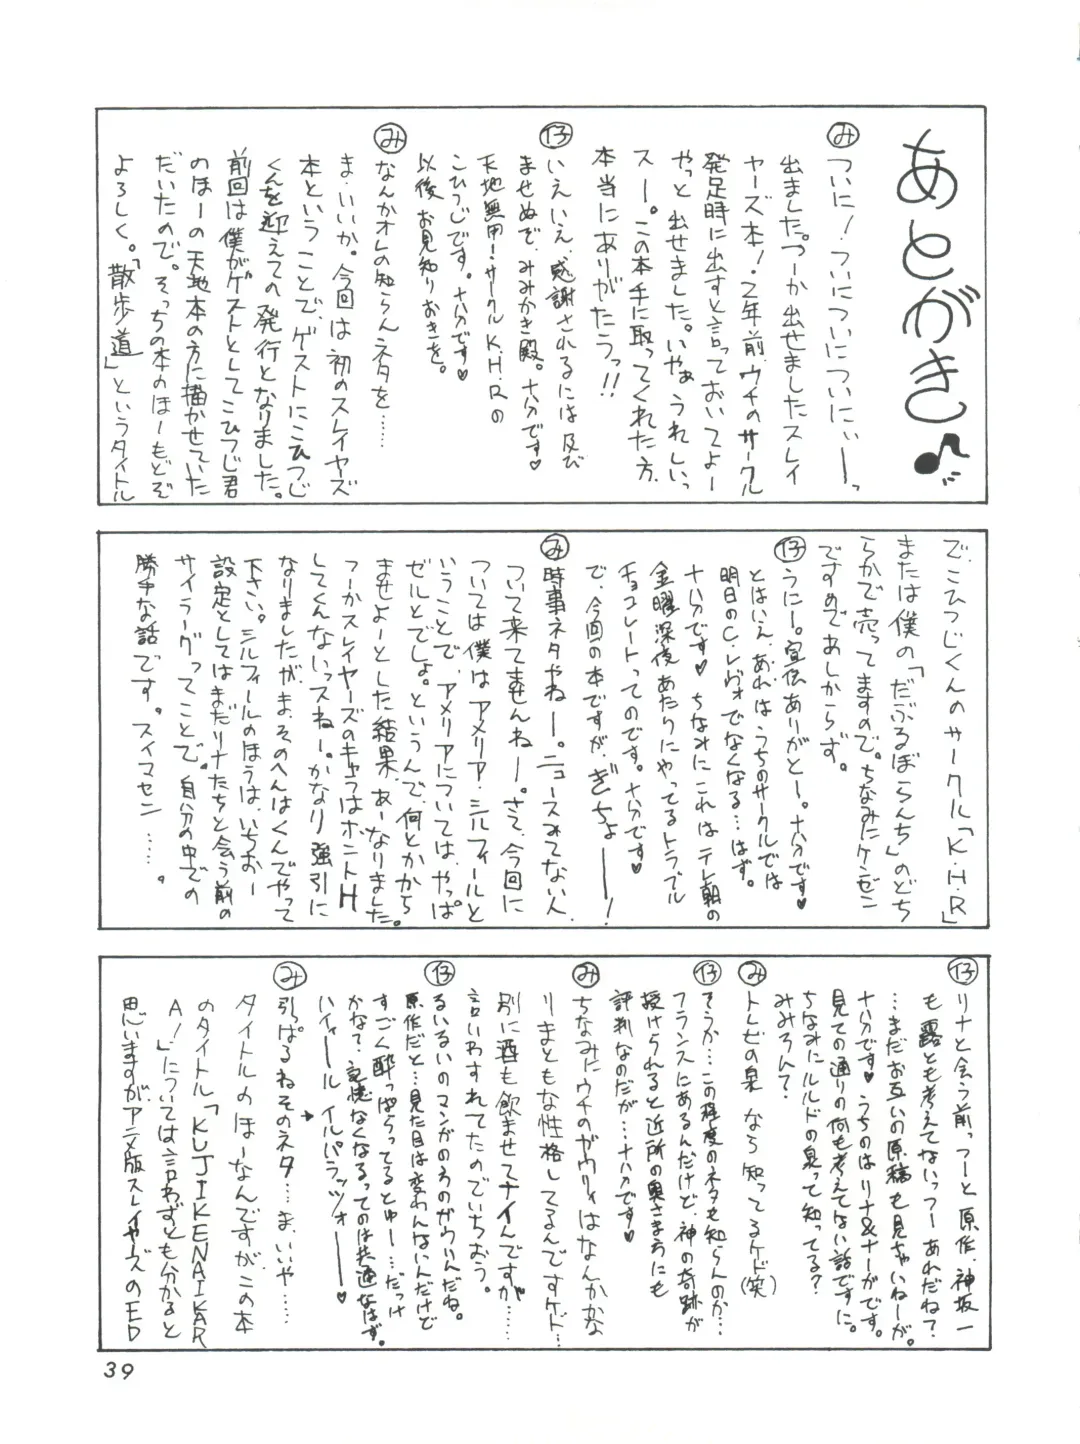 あとがき♪
み ついに!ついについについにぃ――っ
出ました。つーか出せましたスレイ
ヤーズ本!2年前ウチのサークル
発足時に出すと言っておいてよー
やっと出せました。いやぁうれしいっ
スー。この本手に取ってくれた方、
本当にありがたうっ!!
仔 いえいえ、感謝されるには及び
ませぬぞ、みみかき殿。十分です♥
天地無用!サークルK.H.Rの
こひつじです。十分です♥
以後お見知りおきを。
み なんかオレの知らんネタを……
ま、いいか。今回は初のスレイヤーズ
本ということで、ゲストにこひつじ
くんを迎えての発行となりました。
前回は僕がゲストとしてこひつじ君
のほーの天地本の方に描かせていた
だいたので。そっちの本のほーもどぞ
よろしく。「散歩道」というタイトル
で、こひつじくんのサークル「K.H.R」
または僕の「だぶるぼらんち」のどち
らかで売ってますので。ちなみにケンゼン
ですのであしからず。
仔 うにー。宣伝ありがとー。十分です♥
とはいえ、あれはうちのサークルでは
明日のC.レヴォでなくなる…はず。
十分です♥ ちなみにこれはテレ朝の
金曜深夜あたりにやってるトラブル
チョコレートってのです。十分です♥
で、今回の本ですが、ぎちょ――!
み 時事ネタやねー。ニュースみてない人
ついて来てませんねー。さて、今回に
ついては僕はアメリア・シルフィールと
いうことで、アメリアについては、やっぱ
ゼルとでしょ。というんで、何とかから
ませよーとした結果、あーなりました。
つーかスレイヤーズのキャラはホントH
してくんないっスねー。かなり強引に
なりましたが、ま、そのへんはくんでやって
下さい。シルフィールのほうは、いちおー
設定としてはまだリナたちと会う前の
サイラーグってことで。自分の中での
勝手な話です。スイマセン……。
仔 リナと会う前っつーと原作、神坂一
も露とも考えてないっつーあれだね?
…まだお互いの原稿も見ちゃいねーが。
十分です♥ うちのはリナ&ナーガです。
見ての通りの何も考えてない話ですに。
ちなみにルルドの泉って知ってる?
みみろん?
み トレビの泉なら知ってるケド(笑)
仔 そうか…この程度のネタも知らんのか…
フランスにあるんだけど、神の奇跡が
授けられると近所の奥さまらにも
評判なのだが…十分です♥
み ちなみにウチのガウリィはなんかかな
りまともな性格してるんですケド…
別に酒も飲ませてナイんですが……
言いわすれてたのでいちおう。
仔 るいるいのマンガのあのガウリィだね。
原作だと…見た目は変わんないんだけど
すごく酔っぱらってるとゅー…だっけ
かな?記憶なくなるってのは共通なはず。
ハイィール イルパラッツォ―――♥
み 引っぱるねそのネタ……ま、いいや……
タイトルのほーなんですが、この本
のタイトル「KUJIKENAIKAR
A!」については言わずとも分かると
思いますが、アニメ版スレイヤーズのED
39